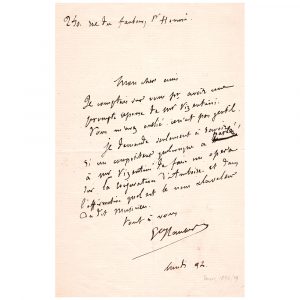 240. rue du faubourg St Honoré
Mon cher ami
Je comptais sur vous pr avoir une
prompte réponse de Mr Vizentini.
Vous m'avez oublié ce n'est pas gentil.
je demande seulement à savoir
si un compositeur quelconque a
à Mr Vizentini de faire un opéra
sur la Conjuration d'Amboise et dans
l'affirmative quel est le nom
du dit Musicien
Tout à vous
lundi 92.